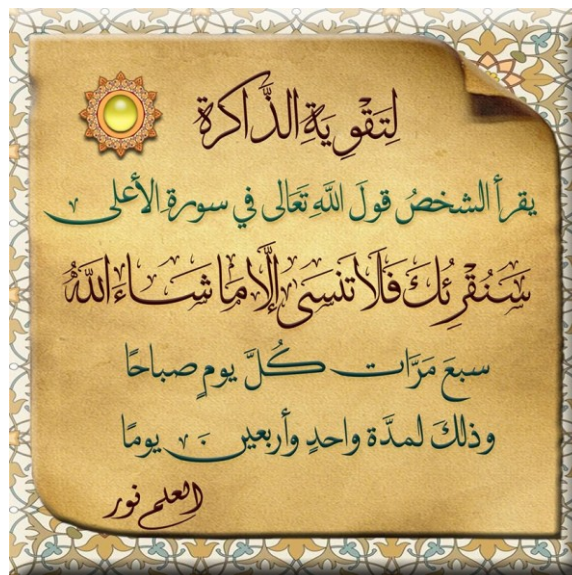 لِتَقْوِيَةِ الذَّاكرة
يقرأ الشخصُ قولَ اللهِ تَعَالى في سورةِ الأعلى
سَنُقْرِئُكَ فَلَا تَنسَى إِلَّا مَا شَاءَ اللَّهُ
سبعَ مَرَّات كُلَّ يومٍ صباحًا
وذلكَ لمدَّة واحدٍ وأربعين يومًا
العلم نور